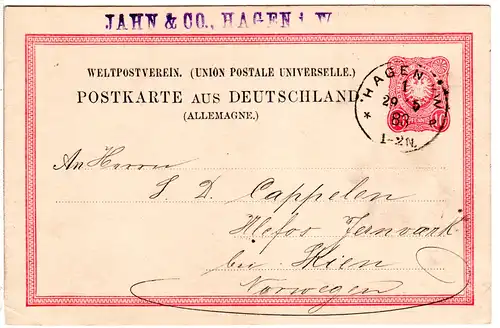 JAHN & CO., HAGEN i. W.
WELTPOSTVEREIN. (UNION POSTALE UNIVERSELLE.)
POSTKARTE AUS DEUTSCHLAND
(ALLEMAGNE.)
* HAGEN
1
29 5
83
1-2N.
An Herrn
S. D. Cappelen
Ulefos Jernværk
bei Skien
Norwegen